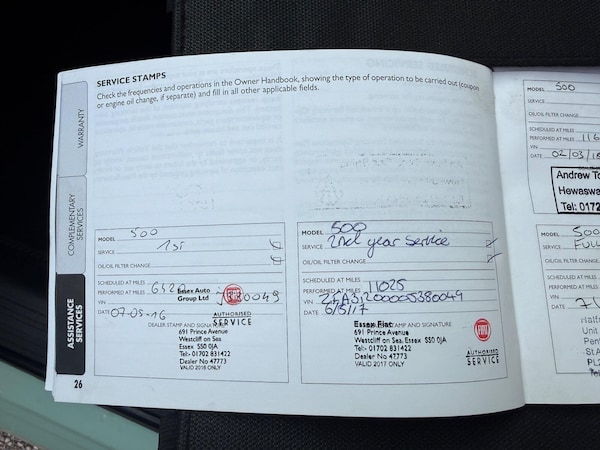 SERVICE STAMPS
Check the frequencies and operations in the Owner Handbook, showing the type of operation to be carried out (coupon
or engine oil change, if separate) and fill in all other applicable fields.
WARRANTY
COMPLEMENTARY SERVICES
ASSISTANCE SERVICES
MODEL 500
SERVICE 1st
OIL/OIL FILTER CHANGE
SCHEDULED AT MILES
PERFORMED AT MILES
VIN
DATE 07-05-16
Essex Auto
Group Ltd
FIAT
AUTHORISED
SERVICE
DEALER STAMP AND SIGNATURE
691 Prince Avenue
Westcliff on Sea
Essex SS0 0JA
Tel:- 01702 831422
Dealer No 47773
VALID 2016 ONLY
MODEL 500
SERVICE 2nd year Service
OIL/OIL FILTER CHANGE
SCHEDULED AT MILES
PERFORMED AT MILES 11025
VIN
DATE 6/5/17
Essex Fiat
STAMP AND SIGNATURE
691 Prince Avenue
Westcliff on Sea, Essex SS0 0JA
Tel:- 01702 831422
Dealer No 47773
VALID 2017 ONLY
FIAT
AUTHORISED
SERVICE
26
MODEL 500
SERVICE
OIL/OIL FILTER CHANGE
SCHEDULED AT MILES
PERFORMED AT MILES 116
VIN
DATE 02/03/18
Andrew To
Hewaswa
Tel: 0172
MODEL 500
SERVICE FUL
OIL/OIL FILTER CHANG
SCHEDULED AT MILES
PERFORMED AT MILES
VIN
DATE
Unit
Pen
PL2